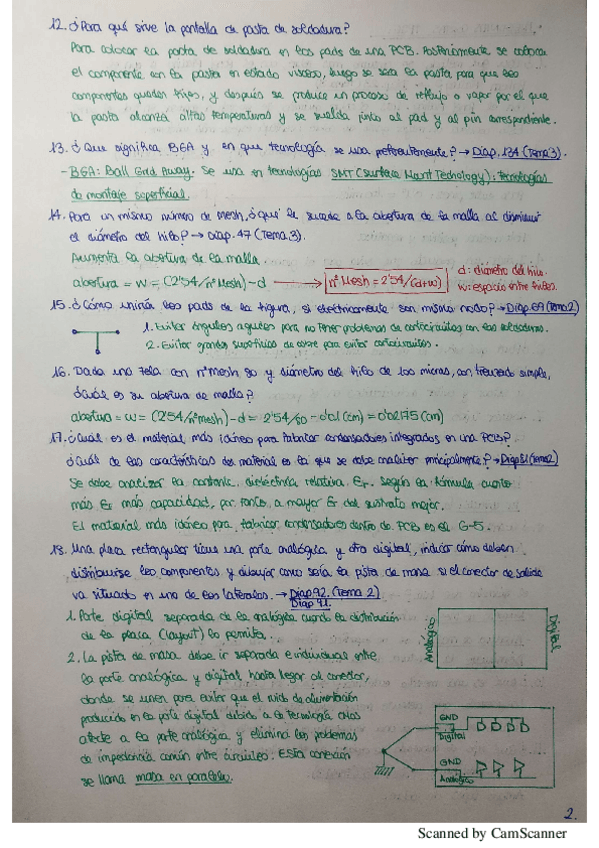 12. ¿Para qué sirve la pantalla de pasta de soldadura?
Para colocar la pasta de soldadura en los pads de una PCB. Posteriormente se coloca
el componente con la pasta en estado viscoso, luego se seca la pasta para que los
componentes queden fijos, y después se produce un proceso de reflujo o vapor por el que
la pasta alcanza altas temperaturas y se suelda junto al pad y al pin correspondiente.
13. ¿Que significa BGA y en que tecnología se usa preferentemente? → Diap. 134 (Tema 3).
- BGA: Ball Grid Array. Se usa en tecnologías SMT (Surface Mount Technology): tecnologías
de montaje superficial.
14. Para un mismo número de mesh, ¿qué le sucede a la abertura de la malla al disminuir
el diámetro del hilo? → Diap. 47 (Tema 3).
Aumenta la abertura de la malla.
abertura = w = (2'54/nºMesh) - d → nº Mesh = 2'54/(d+w)
d: diámetro del hilo.
w: espacio entre hilos.
15. ¿Cómo uniría los pads de la figura, si eléctricamente son mismo nodo? → Diap 69 (Tema 2)
1. Evitar ángulos agudos para no tener problemas de cortocircuitos con las soldaduras.
2. Evitar grandes superficies de cobre para evitar cortocircuitos.
16. Dada una tela con nº mesh 80 y diámetro del hilo de 100 micras, con trenzado simple,
¿cuál es su abertura de malla?
abertura = w = (2'54/nºmesh) - d = 2'54/80 - 0'01 (cm) = 0'02175 (cm)
17. ¿Cuál es el material más idóneo para fabricar condensadores integrados en una PCB?
¿Cuál de las características del material es la que se debe analizar principalmente? → Diap 81 (Tema 2)
Se debe analizar la constante dieléctrica relativa Er. Según la fórmula cuanto
más Er más capacidad, por tanto, a mayor Er del sustrato mejor.
El material más idóneo para fabricar condensadores dentro de PCB es el G-5.
18. Una placa rectangular tiene una parte analógica y otra digital, indicar cómo deben
distribuirse los componentes y dibujar como sería la pista de masa si el conector de salida
va situado en uno de los laterales. → Diap 92. (Tema 2)
Diap 91.
1. Parte digital separada de la analógica cuando la distribución
de la placa (layout) lo permita.
Analógico
Digital
2. La pista de masa debe ir separada e individual entre
la parte analógica y digital hasta llegar al conector,
donde se unen para evitar que el ruido de alimentación
producido en la parte digital debido a la tecnología
afecte a la parte analógica y elimina los problemas
de impedancia común entre circuitos. Esta conexión
se llama masa en paralelo.
GND
Digital
GND
Analógico
2.
Scanned by CamScanner